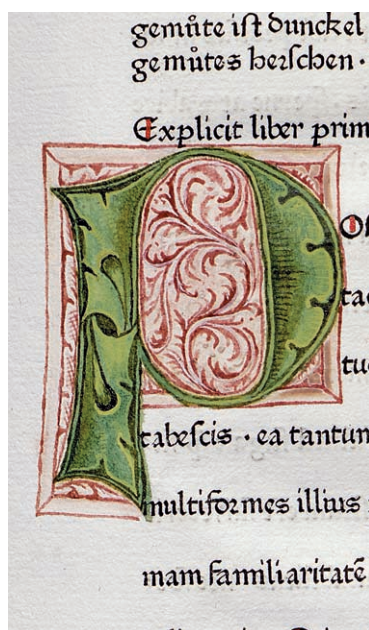 gemůte iſt dunckel
gemůtes herſchen ·
Explicit liber prim
P
oſ
tac
tu
tabeſcis · ea tantum
multiformes illius
mam familiaritatē